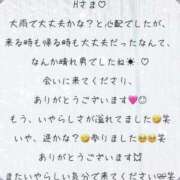 Hさま♡
大雨で大丈夫かな？と心配でしたが、
来る時も帰る時も大丈夫だったなんて、
なんか晴れ男でしたね☀️ ♡
会いに来てくださり、
ありがとうございます💗😊
もう、いやらしさが溢れてました🤤笑
いや、遥かな？🤤参りました🥹🥹笑
ありがとうございます😈
またいやらしい気分で来てください🥹笑